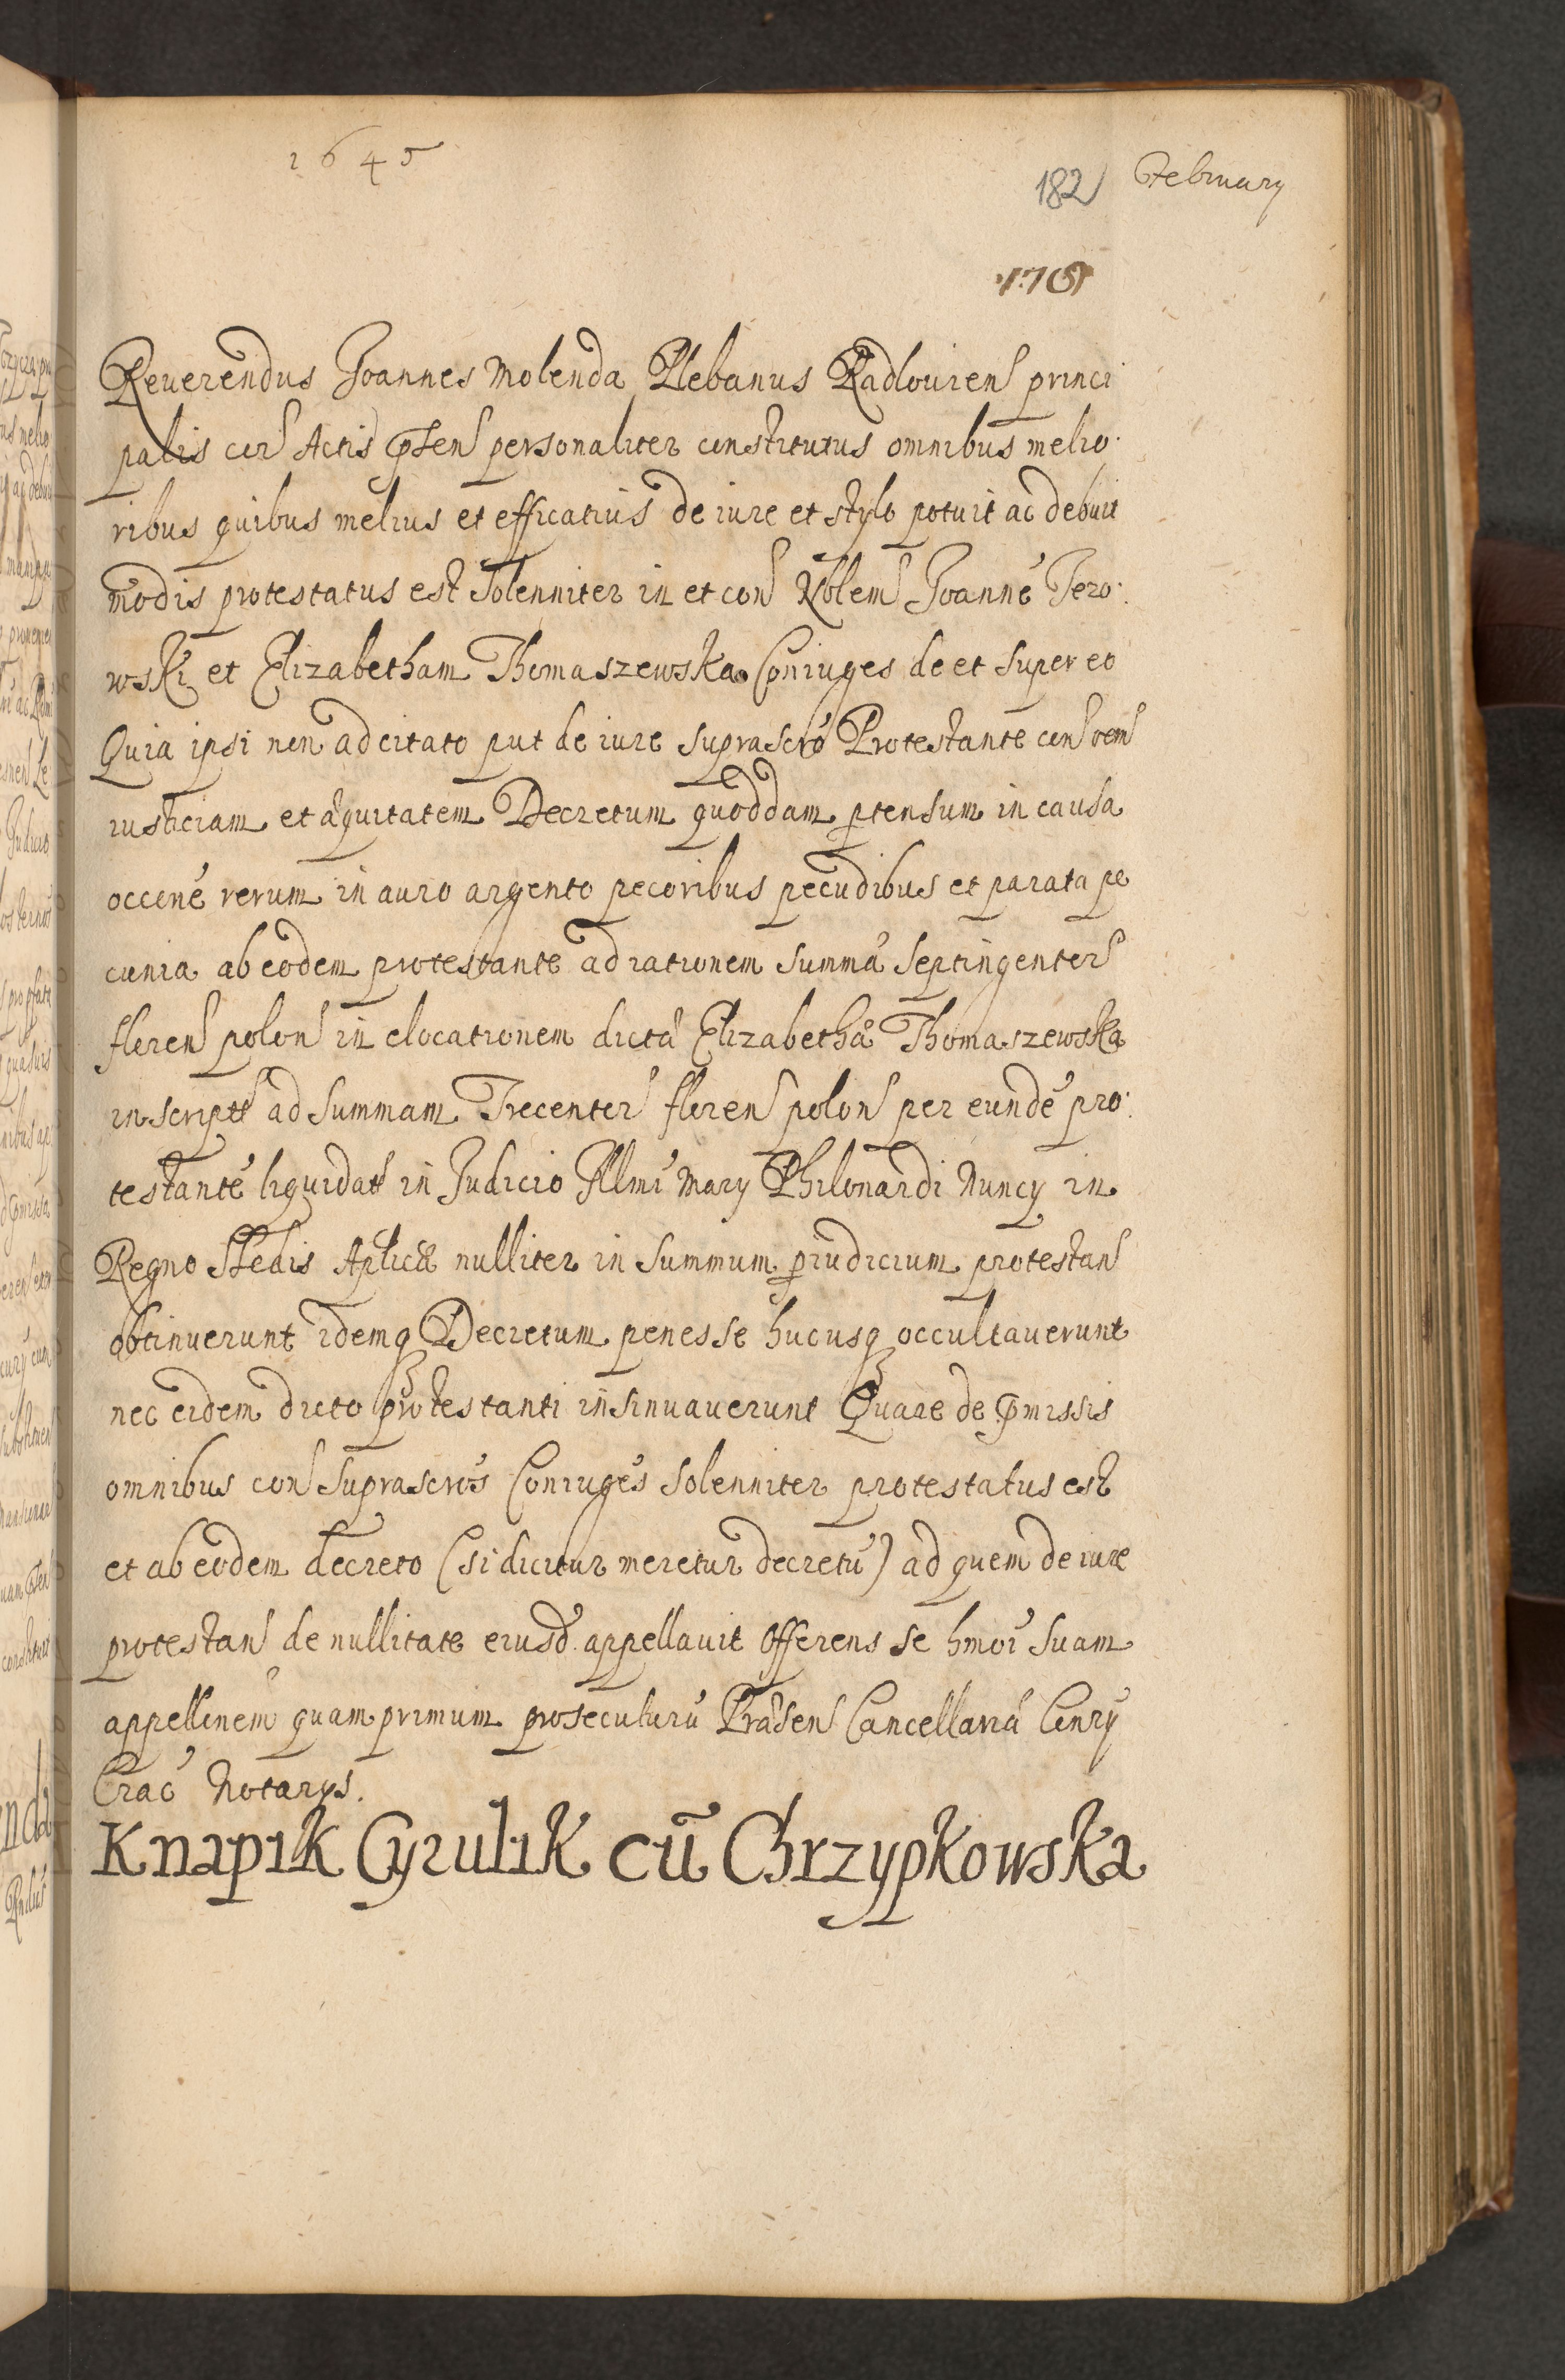 1645
182 February
176
Reuerendus Joannes Molenda Plebanus Radlouien princi
palis cor Actis pñsen personaliter constitutus omnibus melio
ribus quibus melius et efficatius de iure et stylo potuit ac debuit
modis protestatus est solenniter in et con Nobilem Joanne Tero
wski et Elizabetham Thomaszewska Coniuges de et super eo
Quia ipsi non ad citato put de iure suprascrõ Protestante con oem
iusticiam et æquitatem Decretum quoddam ptensum in causa
occnẽ rerum in auro argento pecoribus pecudibus et parata pe
cunia ab eodem protestante ad rationem summæ septingentor
floren polon in elocationem dictæ Elizabethæ Thomaszewska
inscriptæ ad summam Trecentor floren polon per eundẽ pro
testantẽ liquidatæ in Judicio Illmi Marij Philonardi Nuncij in
Regno Sedis Aplicæ nulliter in summum piudicium protestan
obtinuerunt idemq Decretum penes se hucusq occultauerunt
nec eidem dicto protestanti insinuauerunt Quare de pmissis
omnibus con suprascrõs Coniuges solenniter protestatus est
et ab eodem decreto (si dicitur meretur decretũ) ad quem de iure
protestan de nullitate eiusd. appellauit Offerens se hmõi suam
appellõnem quam primum prosecuturũ Præsen Cancellariæ Conrij
Crac Notarijs.
Knapik Cyrulik cũ Chrzypkowska